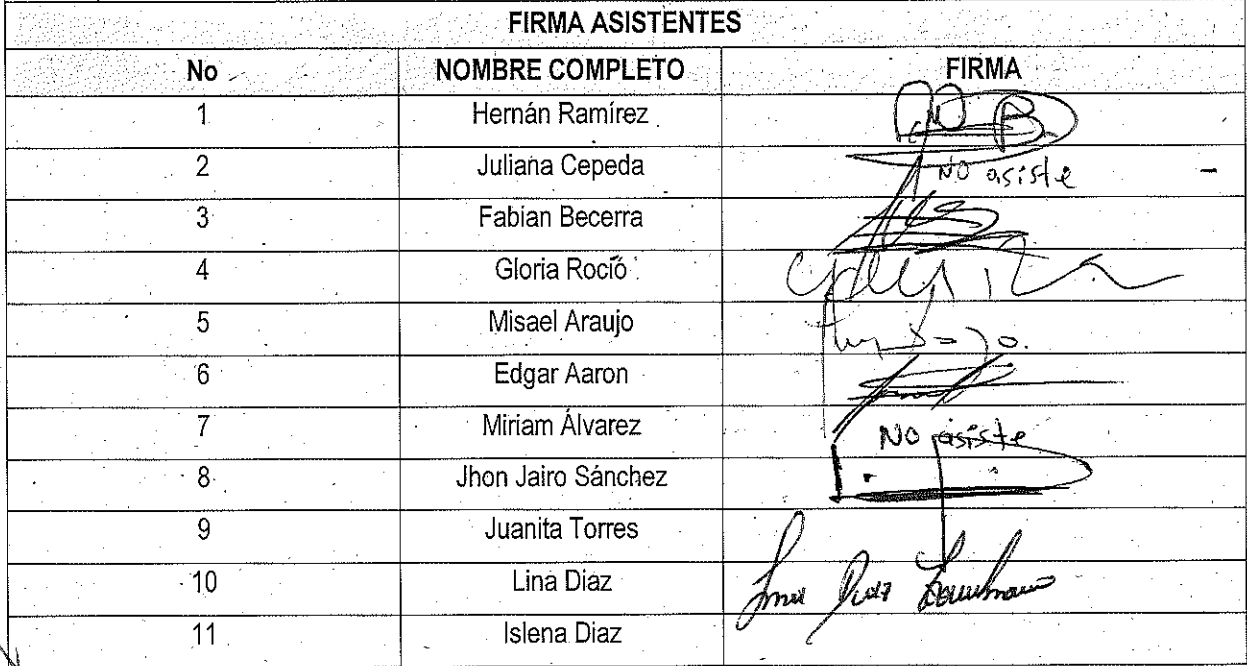 FIRMA ASISTENTES
No NOMBRE COMPLETO FIRMA
1 Hernán Ramírez
2 Juliana Cepeda No asiste
3 Fabian Becerra
4 Gloria Rocío
5 Misael Araujo
6 Edgar Aaron
7 Miriam Álvarez No asiste
8 Jhon Jairo Sánchez
9 Juanita Torres
10 Lina Diaz
11 Islena Diaz